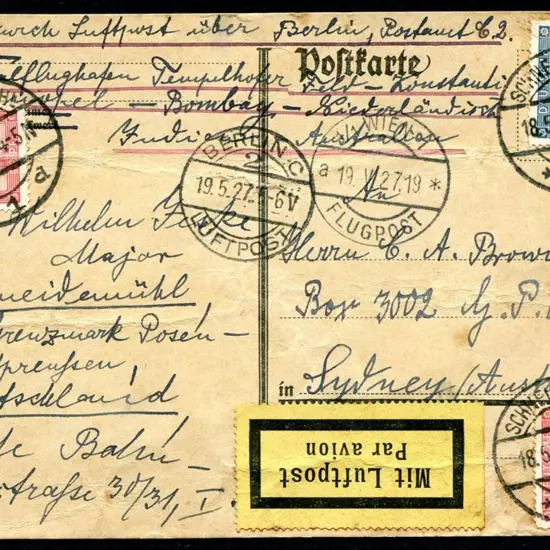 durch Luftpost über Berlin, Postamt C.2.
Postkarte
flughafen Tempelhofer Feld – Konstanti
nopel – Bombay – Niederländisch
Indien Australien
BERLIN C
2
19.5.27. 5-6V
LUFTPOST
WIEN
a 19. V 27.19 *
FLUGPOST
SCHNE
18.
a
An
Wilhelm
Major
neidemühl
Grenzmark Posen –
tpreussen
tschland
Bahn-
straße 30/31, I.
Herrn E. A. Brown
Box 3002 G. P.
in Sydney (Aust
SCHNE
18.5
Mit Luftpost
Par avion